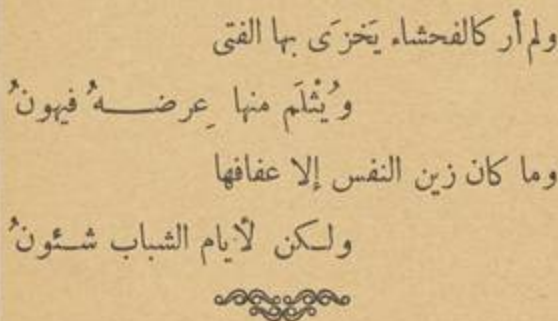 ولم أر كالفحشاء يَخزَى بها الفتى
ويُثْلَم منها عِرضـــهُ فيهونُ
وما كان زين النفس إلا عفافها
ولـكن لأيام الشباب شـئونُ